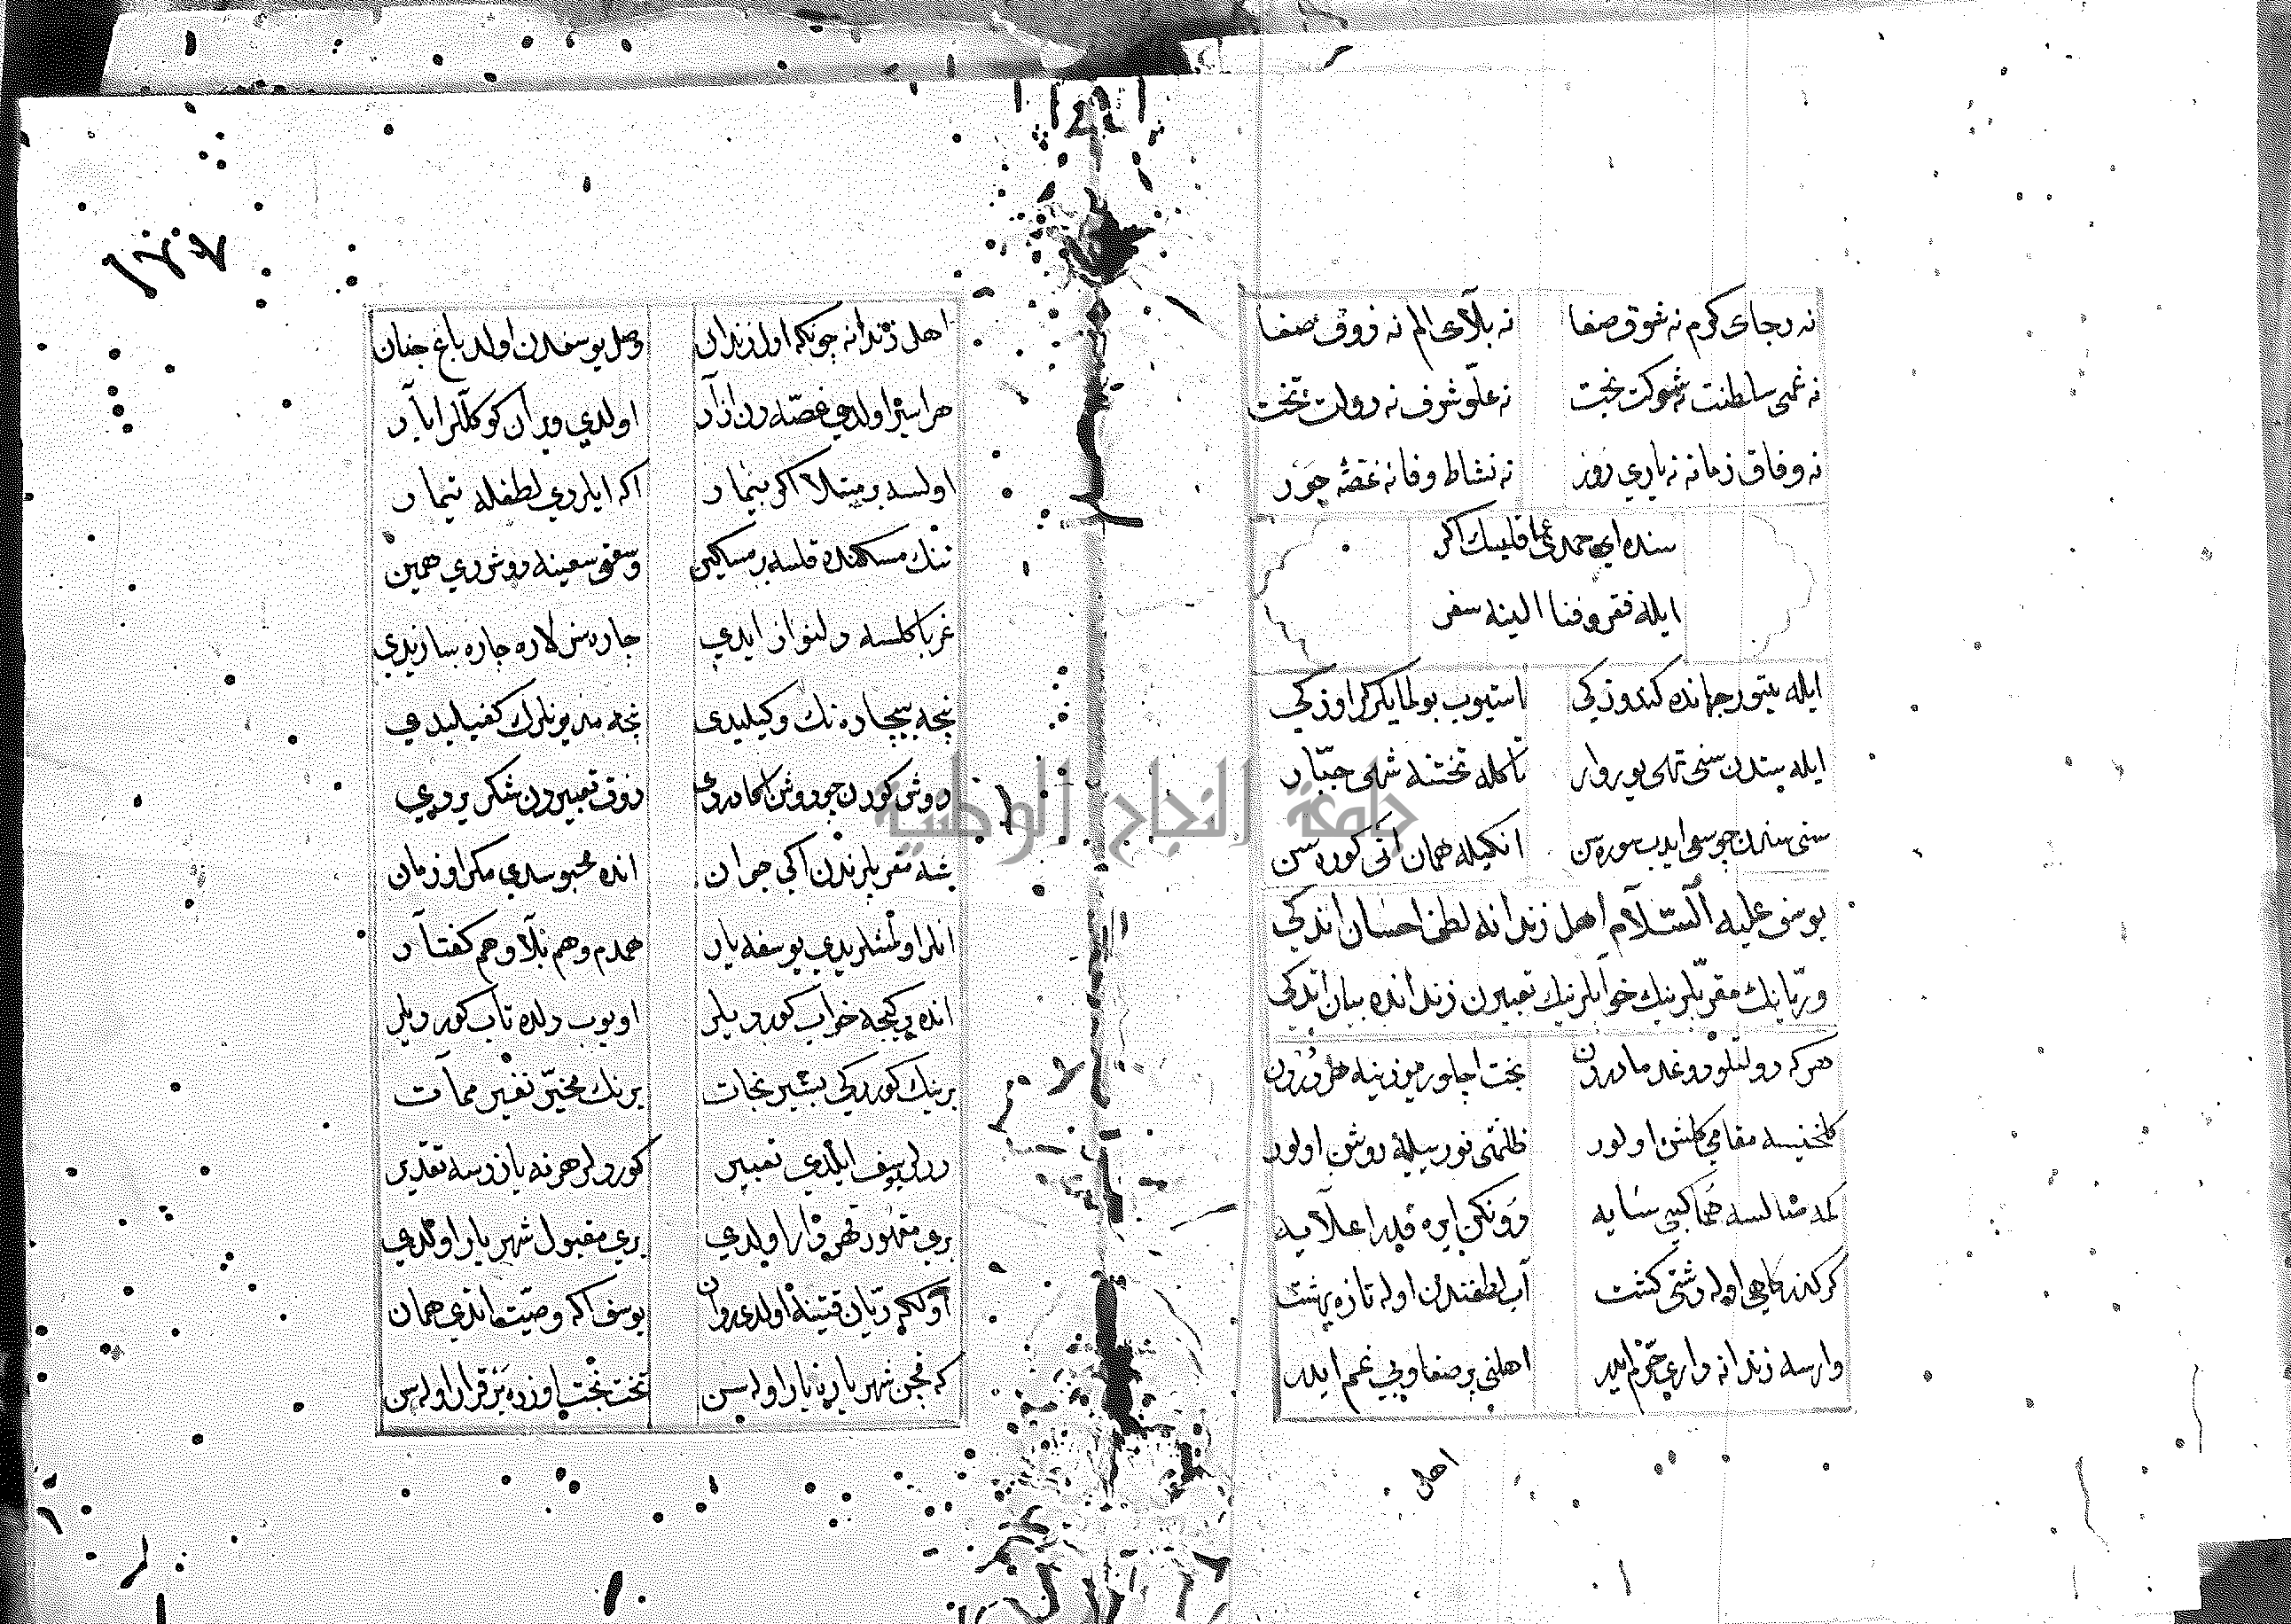 نه رجای کرم نه شوق صفا نه بلای الم نه ذوق صفا
نه غمی سلطنت نه شوکت بخت نه علو شرف نه دولت تخت
نه وفاق زمانه نه یاری روز نه نشاط وفا نه غصّه جور
سنده ای حمدی عاقلیسك اكر
ایله فقر و فنا الینه سفر
ایله یتور جهانده كندوزكی استیوب بولمایكرلر اوزكی
ایله سندن سنی تهی یوروار تا كله تختنه شهی جبّار
سنی سندن چو سوی ایدب سوره سن انكیله همان انی كوره سن
یوسف علیه السّلام اهل زندانه لطف احسان اتدكی
و ریانك مقرّبلرینك خوابلرینك تعبیرن زندانده بیان اتدكی
هركه دولتلو دوغه مادردن بخت اچلور یوزینه هر دردن
كلخنیسه مقامی كلشن اولور ظلمتی نوریله روشن اولور
كمه صالسه هما كبی سایه دونكن ایره قدر اعلایه
كر كذرگاهی اوله دشتی كشت آب لطفندن اوله تازه بهشت
وارسه زندانه واری خرّم ایدر اهلنی پر صفا و بی غم ایدر
اهل
١٢٧
اهل زندانه چونكه اول زندان وصل یوسفدن اولدی باغ جنان
هر اسیر اولدی غصّه دن آزاد اولدی ویران كوكللر اباد
اولسه بر مبتلا اكر بیمار اكه ایلردی لطفله تیمار
تنك مسكنده قلسه بر مسكین وسعی سعینه دوشردی همین
غربا كلسه دلنواز ایدی چاره سزلاره چاره ساز ایدی
نیجه بیچاره نك وكیلیدی نجه مدیونلرك كفیلیدی
دوش كورن چو دوشن اكا دردی ذوق تعبیردن شكر یردی
شه مقربلرندن اكی جوان انده محبوسدی مكر او زمان
انلر اولمشلریدی یوسفه یار همدم و هم بلا و هم كفتار
انده بر كیجه خواب كوردیلر اویوب دلده تاب كوردیلر
برینك كوردكی بشیر نجات برینك مخبّر نفیر ممات
دیدلر یوسف ایلدی تعبیر كوردلر هر نه یازدسه تقدیر
بری مقهور قهر وار اولدی بری مقبول شهریار اولدی
اولكه ریان قتینه اولدی روان یوسف اكه وصیّت اتدی همان
كه قچن شهریاره یار اوله سن تخت بخت اوزره برقرار اوله سن
جامعة النجاح الوطنية